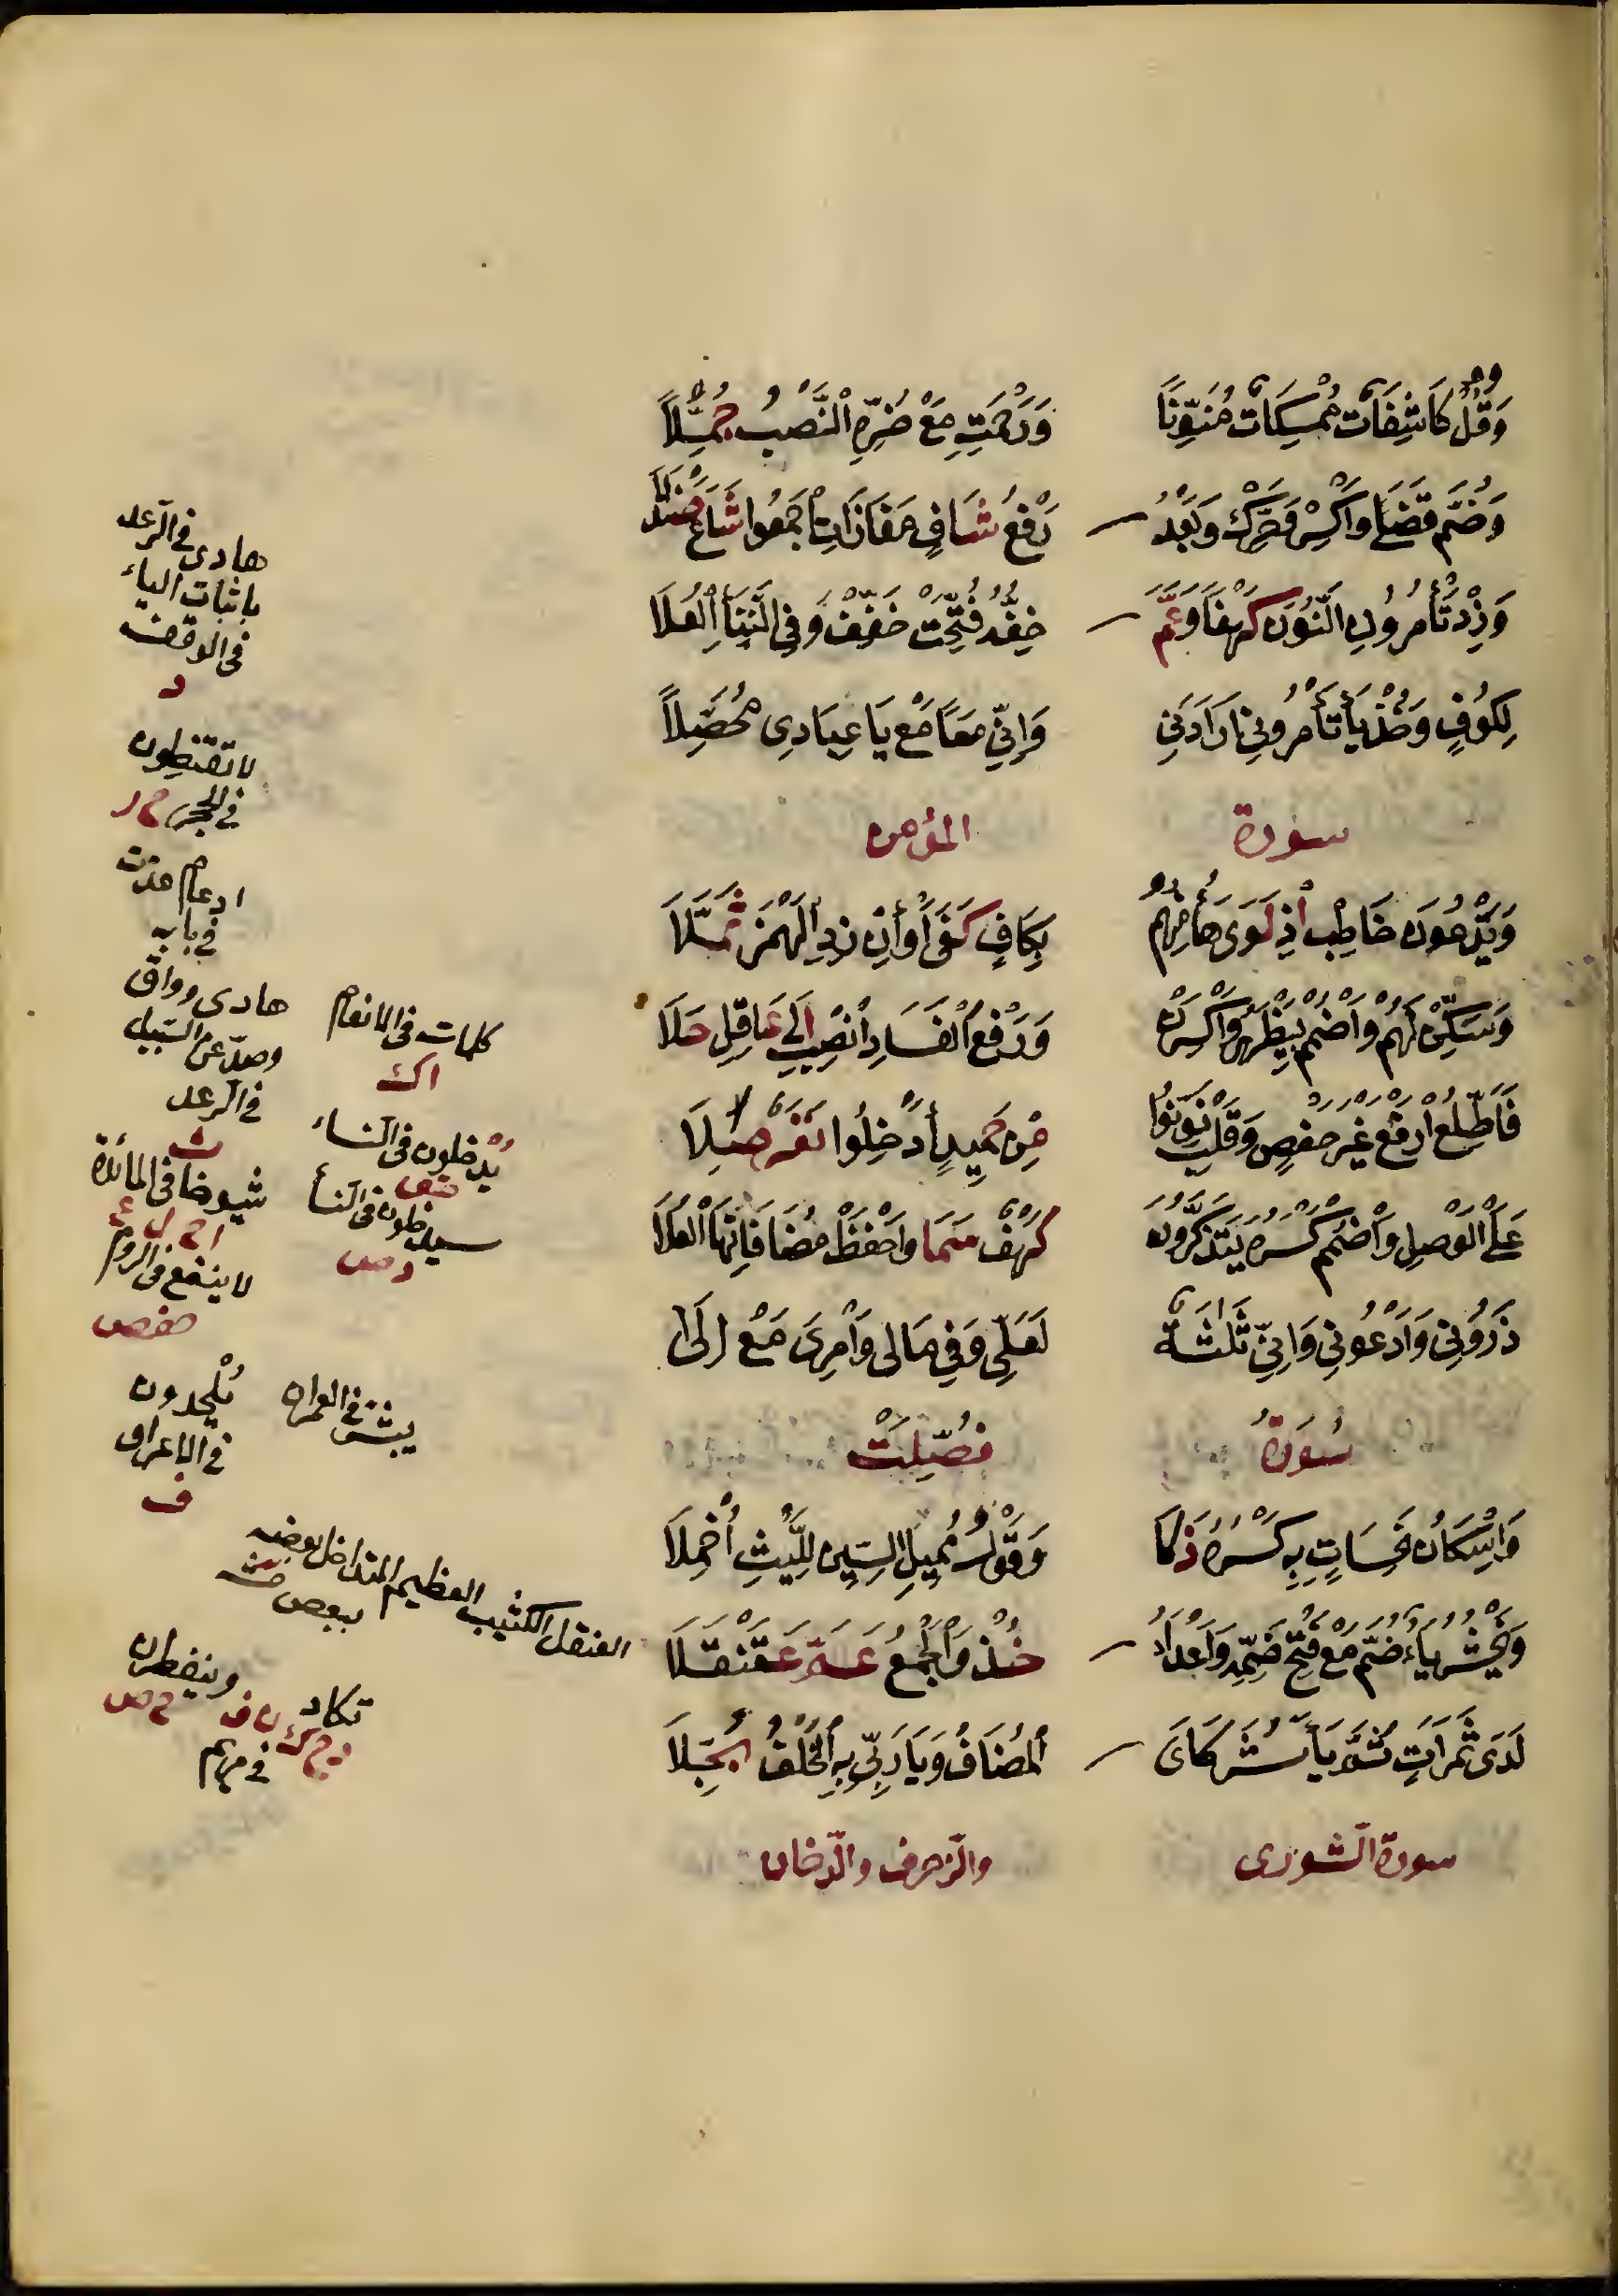 وَقُلْ كَاشِفَاتٌ مُمْسِكَاتٌ مُنَوِّنًا وَرَحْمَتِهِ مَعْ ضُرِّهِ النَّصْبُ حُمِّلَا
وَضُمَّ قَضَى وَاكْسِرْ وَحَرِّكْ وَبَعْدُ رَفْعُ شَافٍ مَفَازَاتِ اجْمَعُوا شَاعَ صَنْدَلَا
وَزِدْ تَأْمُرُونِ النُّونَ كَهْفًا وَعَمَّ خِفُّهُ فُتِّحَتْ خَفِّفْ وَفِي النَّبَإِ الْعُلَا
لِكُوفٍ وَخُذْ يَا تَأْمُرُونِي أَرَادَنِي وَإِنِّي مَعًا مَعْ يَا عِبَادِي مُحَصِّلَا
سورة المؤمن
وَيَدْعُونَ خَاطِبْ إِذْ لَوَى هَاءُ مِنْهُمْ بِكَافٍ كَفَى أَوْ أَنْ زِدِ الْهَمْزَ ثُمَّلَا
وَسَكِّنْ لَهُمْ وَاضْمُمْ بِيَظْهَرَ وَاكْسِرَنْ وَرَفْعَ الْفَسَادَ انْصِبْ إِلَى عَاقِلٍ حَلَا
فَأَطَّلِعَ ارْفَعْ غَيْرَ حَفْصٍ وَقَلْبِ نَوِّنُوا مِنْ حَمِيدٍ أَدْخِلُوا نَفَرٌ صِلَا
عَلَى الْوَصْلِ وَاضْمُمْ كَسْرَهُ يَتَذَكَّرُونَ كَهْفٌ سَمَا وَاحْفَظْ مُضَافَاتِهَا الْعُلَا
ذَرُونِي وَادْعُونِي وَإِنِّي ثَلَثَةٌ لَعَلِّي وَفِي مَالِي وَأَمْرِيَ مَعْ إِلَى
سُورَةُ فُصِّلَتْ
وَإِسْكَانُ نَحِسَاتٍ بِهِ كَسْرُهُ ذَكَا وَقَوْلُ مُمِيلِ السِّينِ لِلَّيْثِ أُخْمِلَا
وَنَحْشُرُ يَاءٌ ضُمَّ مَعْ فَتْحِ ضَمِّهِ وَأَعْدَاءُ خُذْ وَالْجَمْعُ عَمَّ عَقَنْقَلَا
لَدَى ثَمَرَاتٍ ثُمَّ يَا شُرَكَائِيَ الْمُضَافُ وَيَا رَبِّي بِهِ الْخُلْفُ بُجِّلَا
سورة الشورى والزخرف والدخان
هادى فى الرعد
باثبات الياء
فى الوقف
د
لا تقنطون
فى الحجر ح ر
ادغام عذت
فى بابه
هادى وواق
وصد عن السبيل
فى الرعد
ث
كلمات فى الانعام
يدخلون فى النساء
شيوخا فى المائدة
سيدخلون فى النسأ
د ص
لا ينفع فى الروم
حفص
يلحدون
فى الاعراف
ف
يبشر فى العمران
العقنقل الكثيب العظيم المتداخل بعضه
ببعض
تكاد وينفطرن
فى مريم